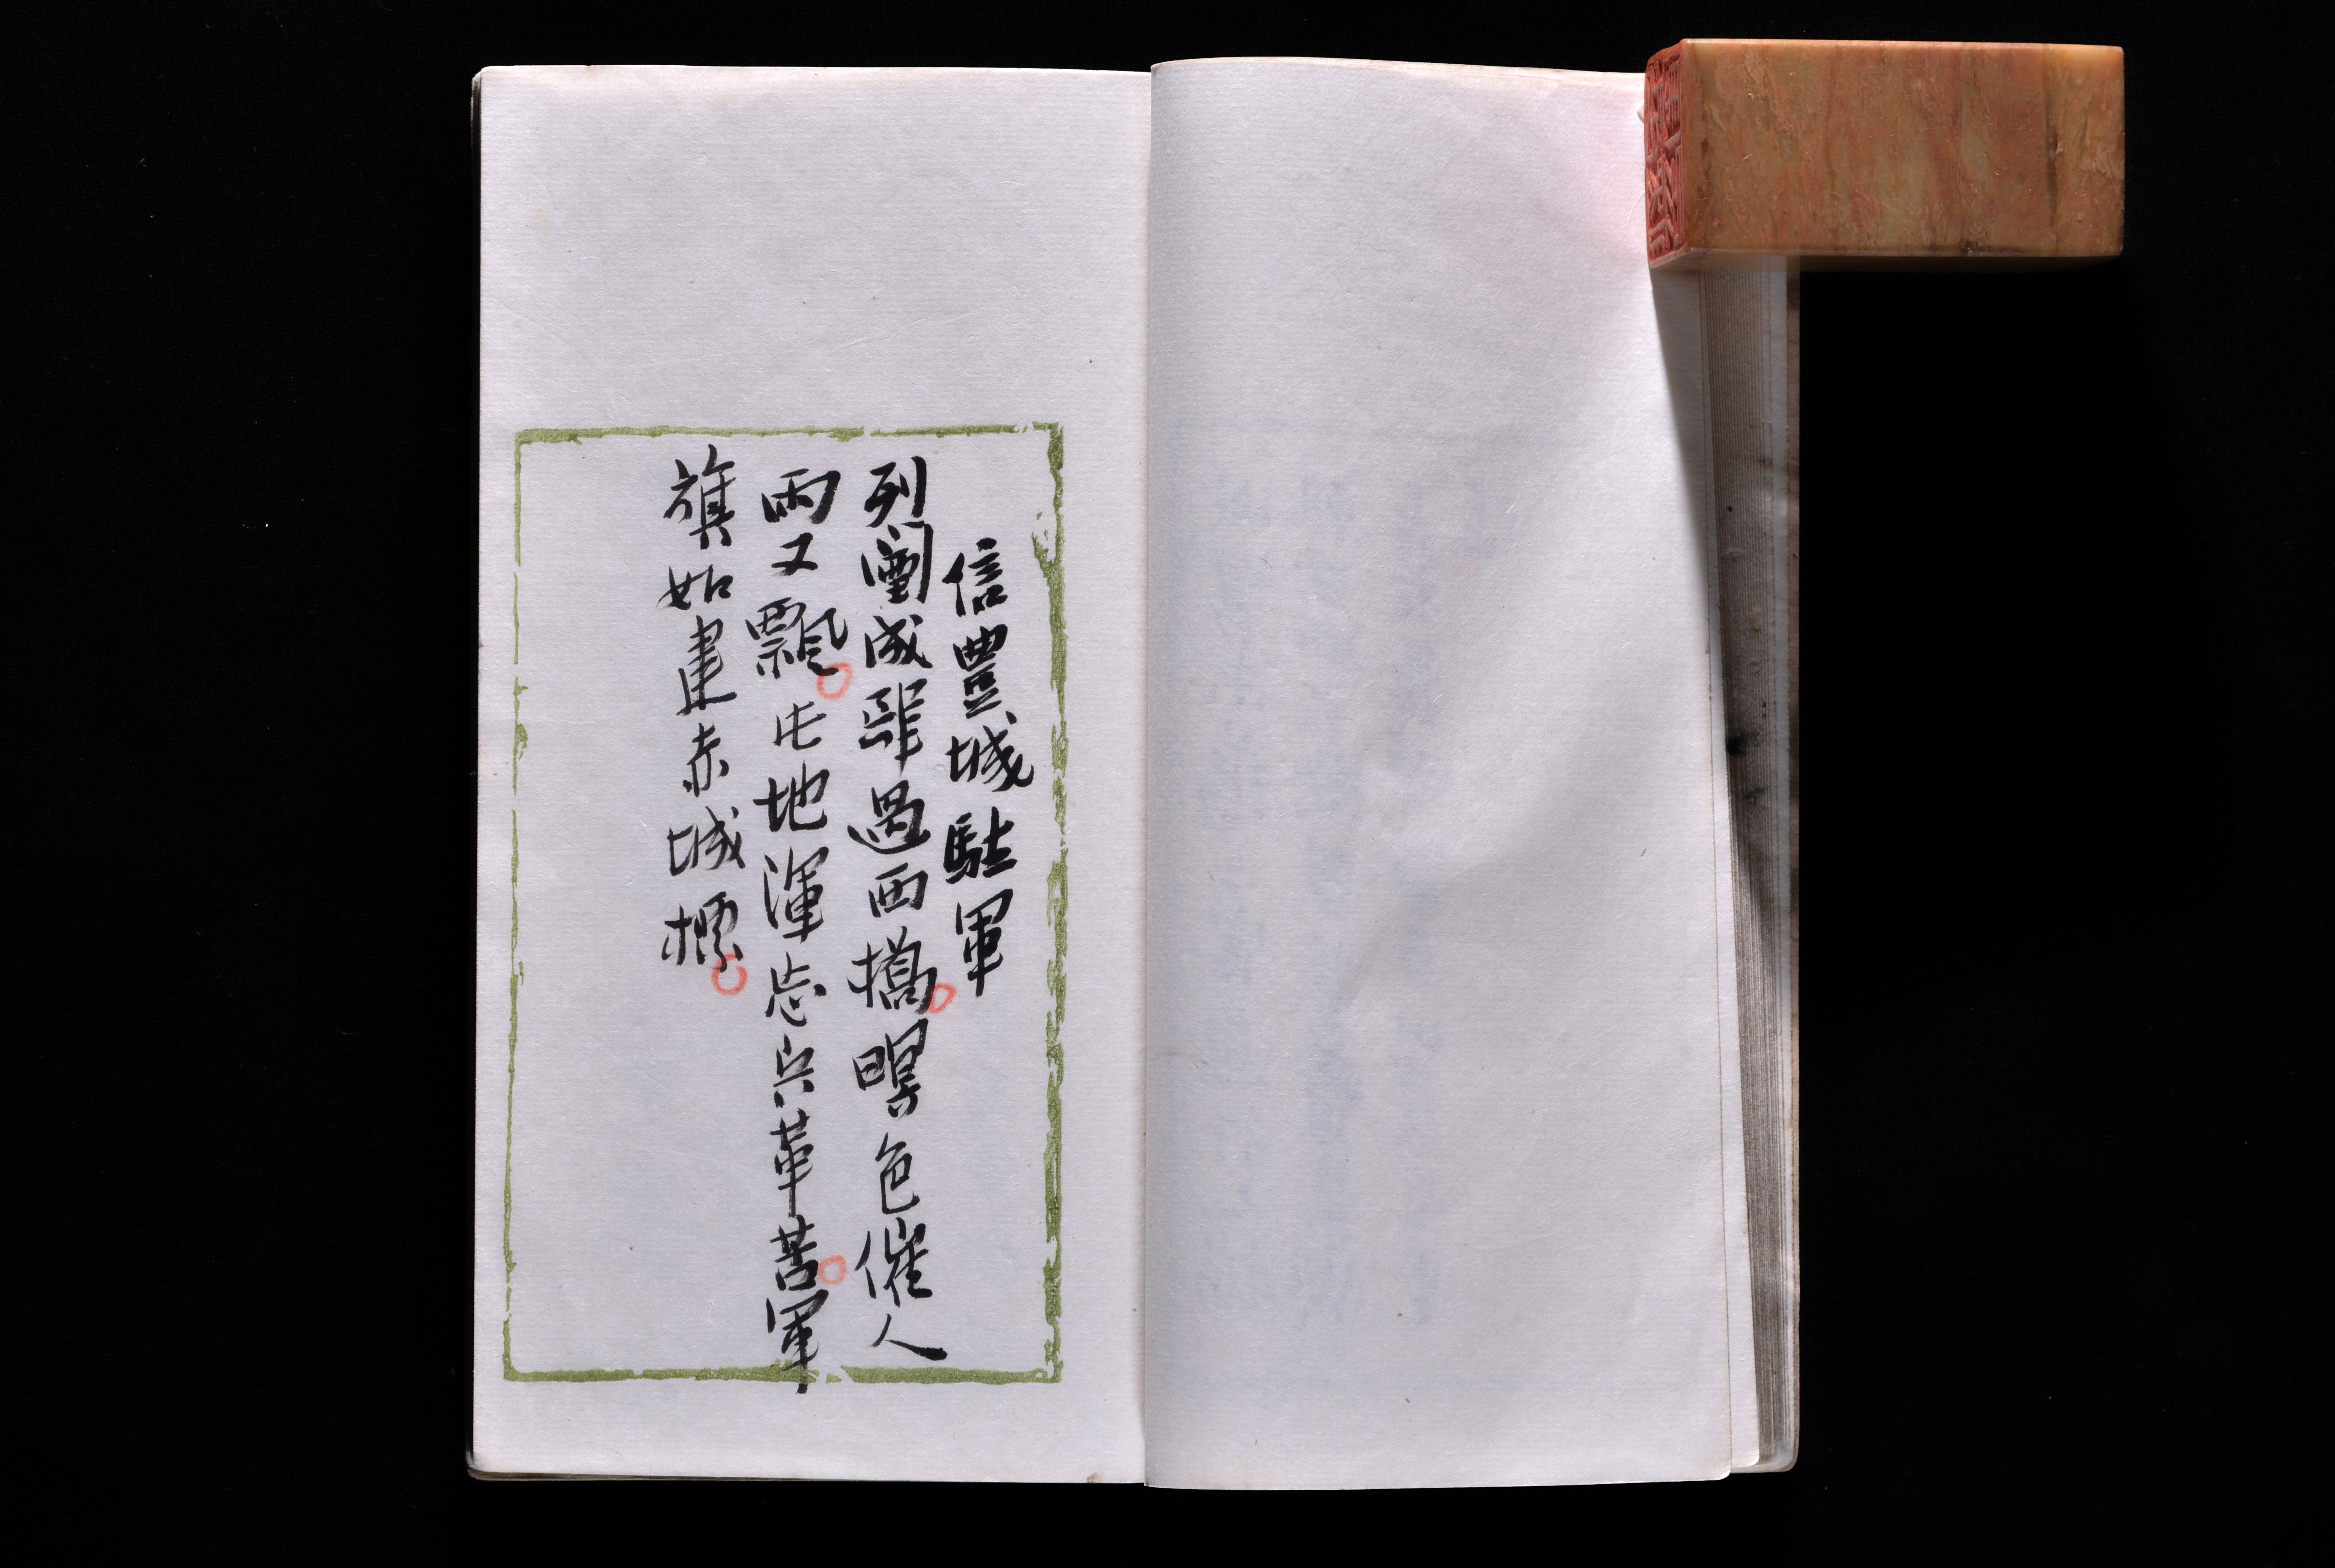 信豐城駐軍
列闉成肆過西橋暝色催人
雨又飄屯地渾忘兵革苦軍
旗如建赤城標